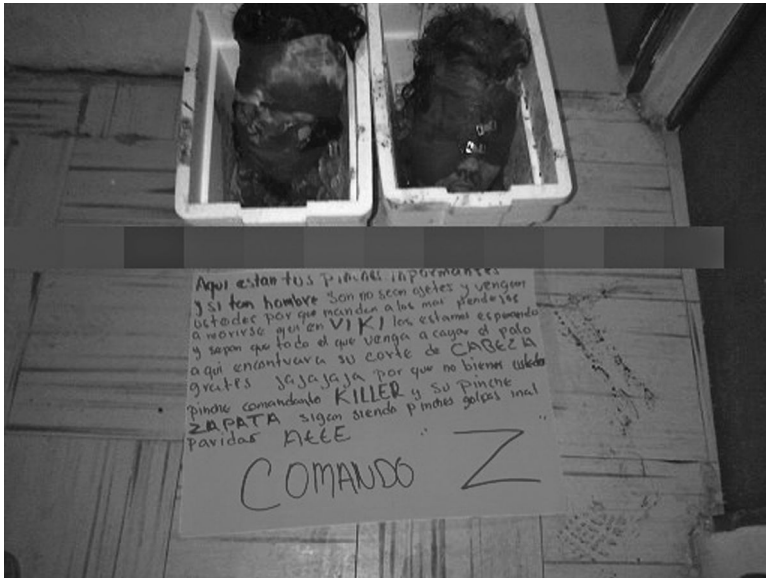 Aqui estan tus pinches informantes
y si tan hombre son no sean ojetes y vengan
ustedes por que mandan a los mas pendejos
a morirse qui en VIKI los estamos esperando
y sepan que todo el que venga a cagar el palo
aqui encontrara su corte de CABEZA
gratis jajajaja por que no bienes ustedes
pinche comandante KILLER y su pinche
ZAPATA sigan siendo pinches golpas
paridas Atte
COMANDO Z